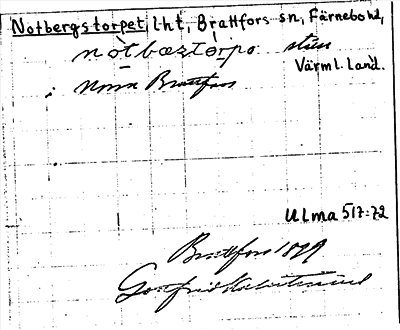 Notbergstorpet, lht, Brattfors sn, Färnebo hd,
nòtbæztórpə
Värml. Land.
Norra Brattfors
Ulma 517:72
Brattfors 1879
Gottfrid Kallstenius